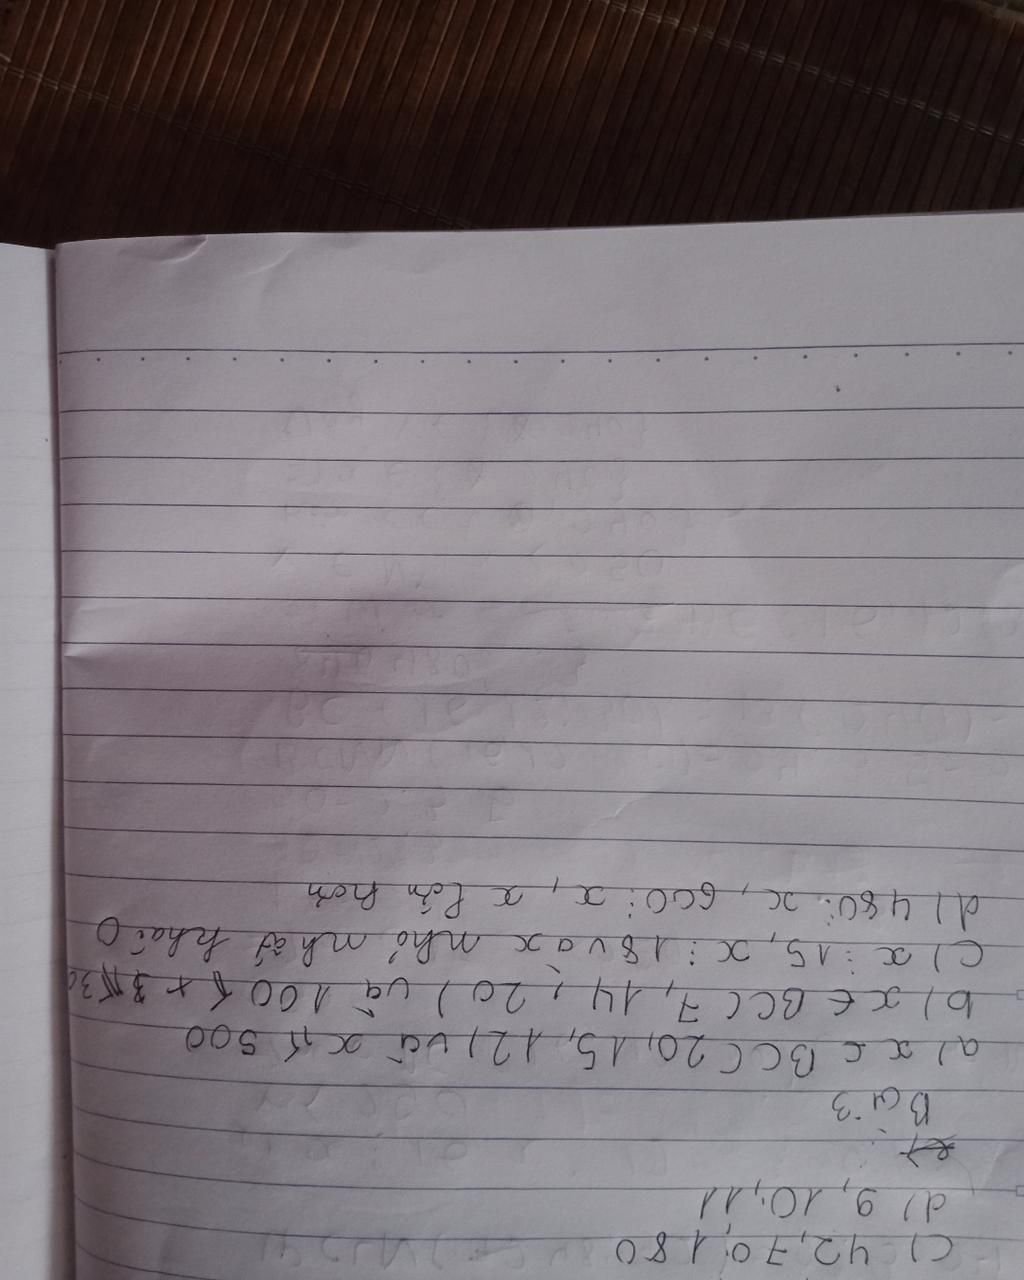 C) 42, 70, 180
d) 9, 10, 11
Bài 3
a) x ∈ BC ( 20, 15, 12 ) và x ≤ 500
b) x ∈ BC ( 7, 14, 20 ) và 100
C) x ⋮ 15, x ⋮ 18 và x nhỏ nhất khác 0
d) 480 ⋮ x, 600 ⋮ x, x lớn hơn